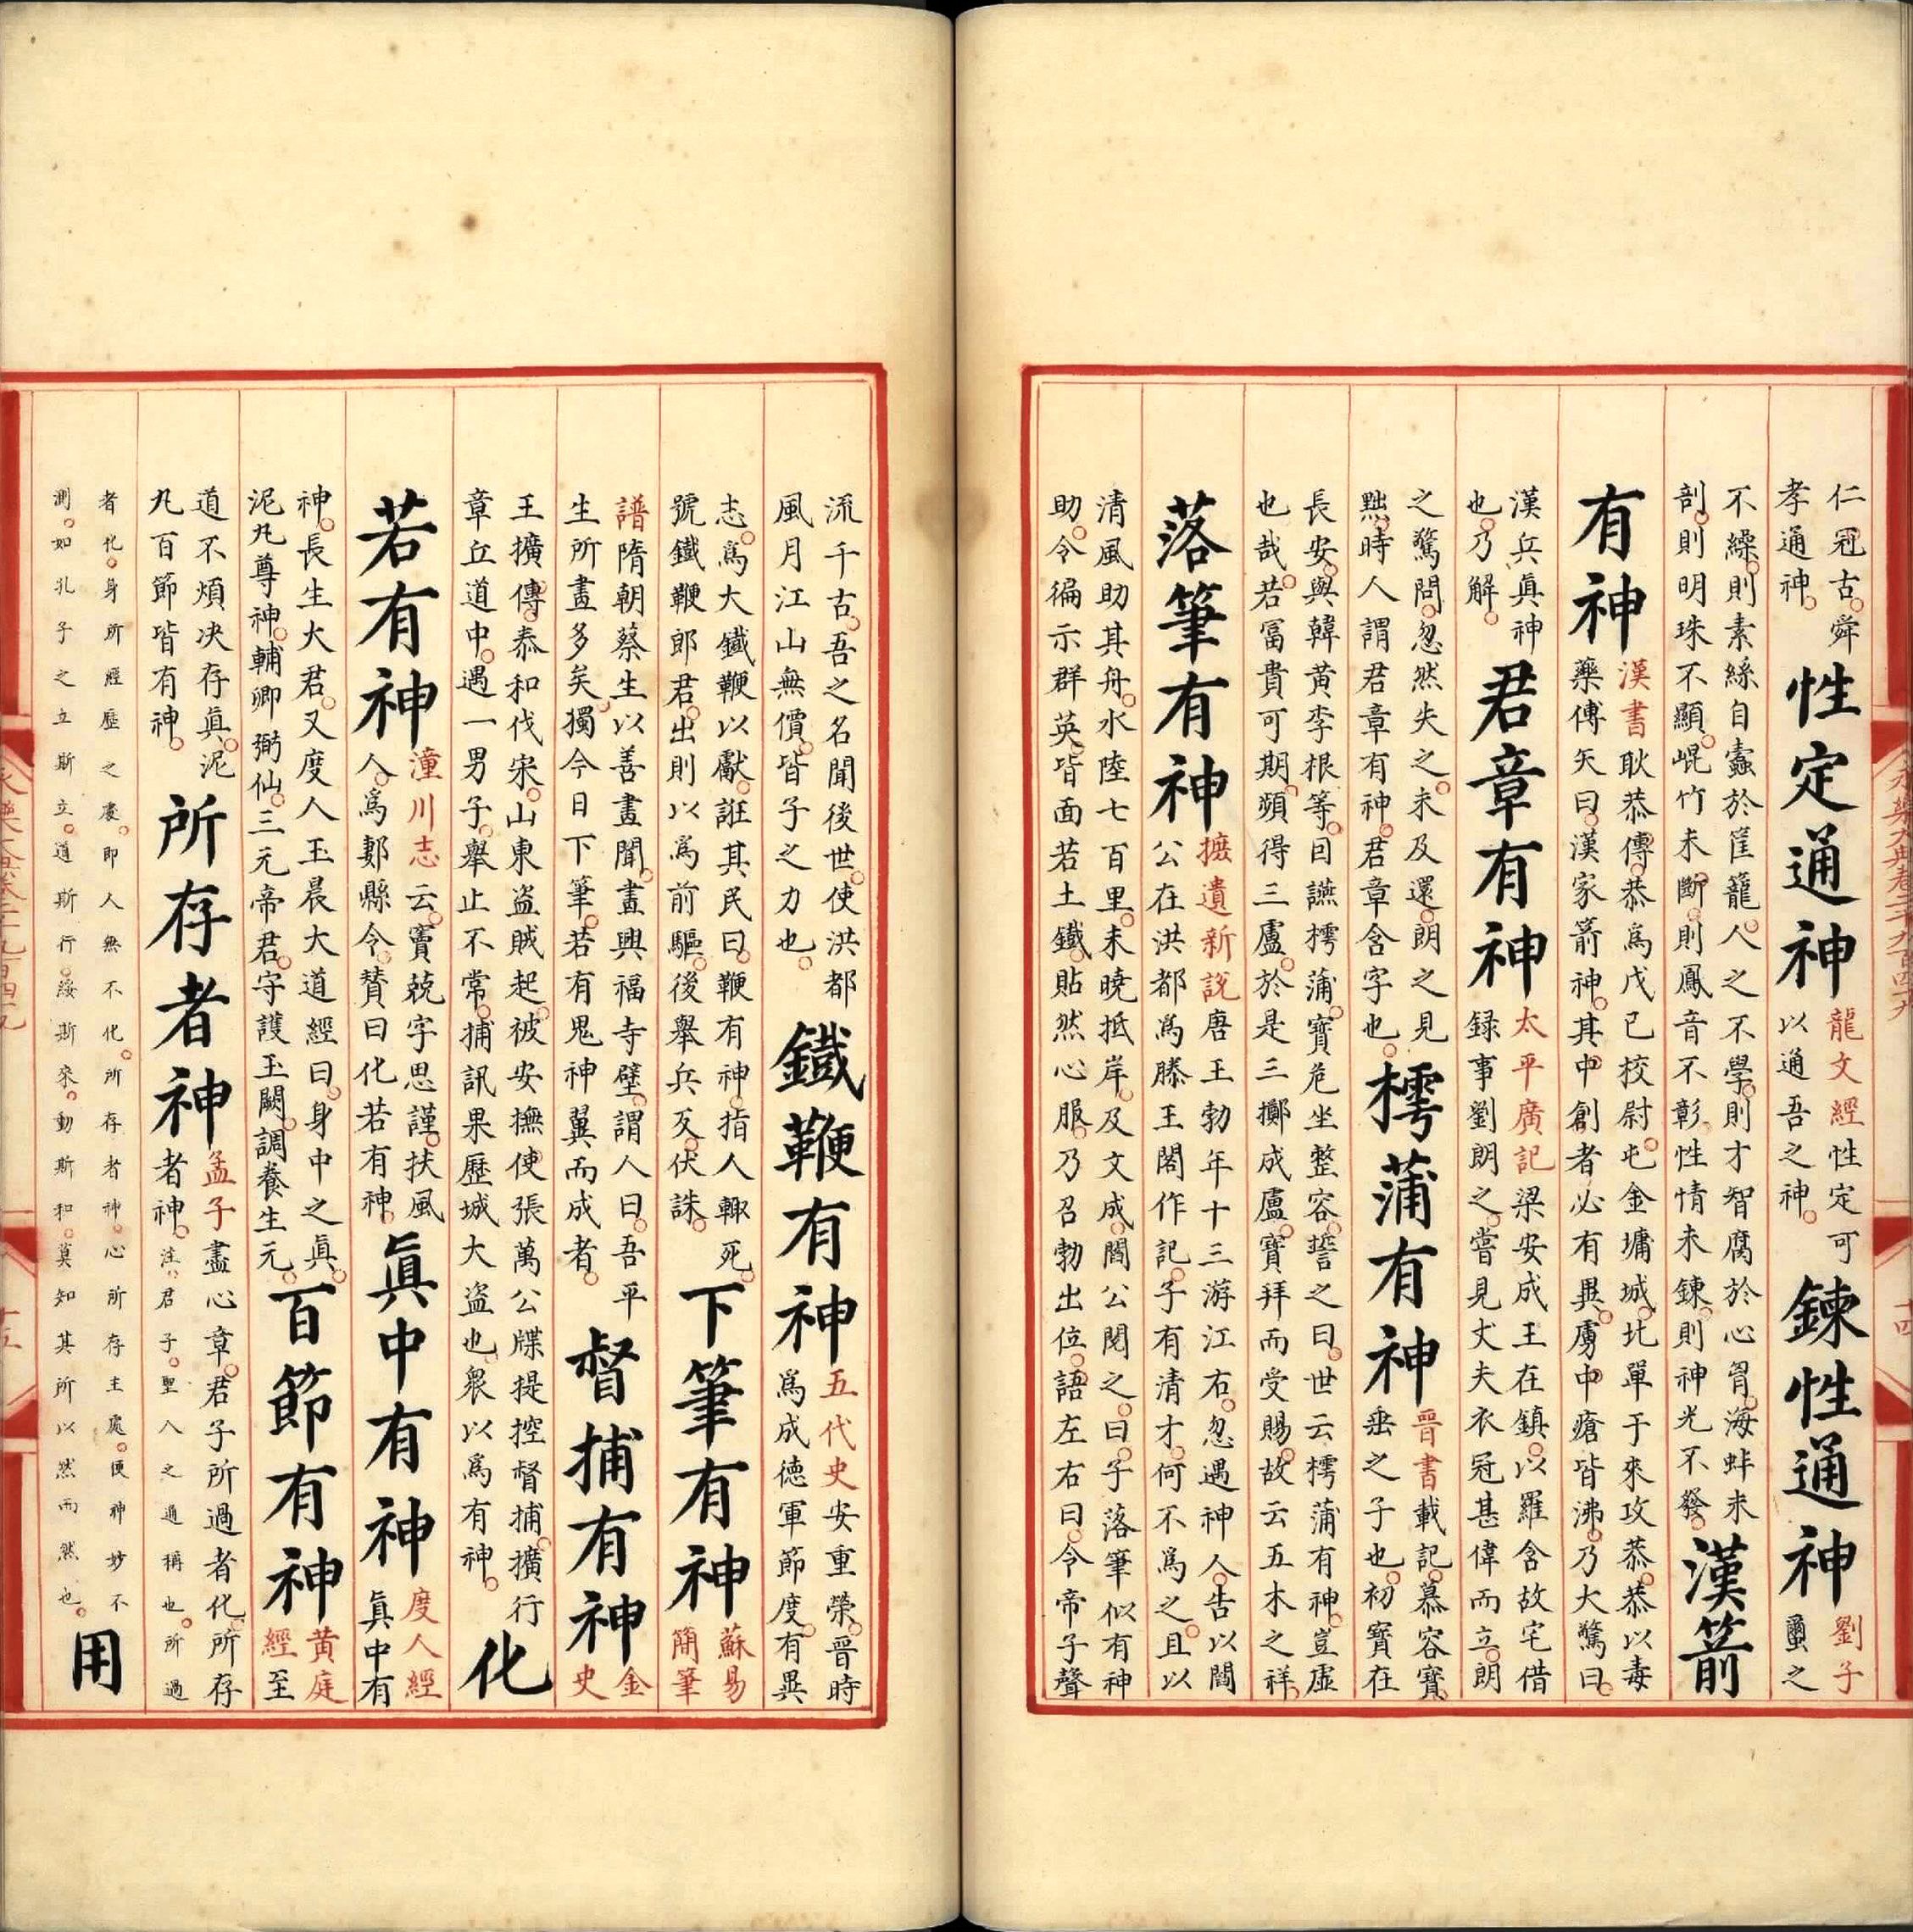 仁冠古。舜
孝通神。
性定通神
龍文經性定可
以通吾之神。
鍊性通神
劉子
蠒之
不繰。則素絲自蠹於筐籠。人之不學。則才智腐於心胷。海蚌未
剖。則明珠不顯。崐竹未斷。則鳳音不彰。性情未鍊。則神光不發。
漢箭
有神
漢書耿恭傳。恭爲戊己校尉。屯金墉城。北單于來攻恭。恭以毒
藥傅矢曰。漢家箭神。其中創者必有異。虜中瘡皆沸。乃大驚曰。
漢兵眞神
也。乃解。
君章有神
太平廣記梁安成王在鎮。以羅含故宅借
録事劉朗之。嘗見丈夫衣冠甚偉而立。朗
之驚問。忽然失之。未及還。朗之見
黜。時人謂君章有神。君章含字也。
樗蒲有神
晉書載記。慕容寶
垂之子也。初寶在
長安。與韓黃李根等。因讌樗蒲。寶危坐整容。誓之曰。世云樗蒲有神。豈虛
也哉。若冨貴可期。頻得三盧。於是三擲成盧。寶拜而受賜。故云五木之祥。
落筆有神
摭遺新說唐王勃年十三游江右。忽遇神人。告以閻
公在洪都爲滕王閣作記。子有清才。何不爲之。且以
清風助其舟。水陸七百里。未曉抵岸。及文成。閻公閱之。曰。子落筆似有神
助。令徧示群英。皆面若土鐵。貼然心服。乃召勃出位。語左右曰。令帝子聲
流千古。吾之名聞後世。使洪都
風月江山無價。皆子之力也。
鐵鞭有神
五代史安重榮。晉時
爲成德軍節度。有異
志。爲大鐵鞭以獻。誑其民曰。鞭有神。指人輙死。
號鐵鞭郎君。出則以爲前驅。後舉兵反。伏誅。
下筆有神
蘇易
簡筆
譜隋朝蔡生以善畫聞。畫興福寺壁。謂人曰。吾平
生所畫多矣。獨今日下筆。若有鬼神翼而成者。
督捕有神
金
史
王擴傳。泰和伐宋。山東盜賊起。被安撫使張萬公牒提控督捕。擴行
章丘道中。遇一男子。舉止不常。捕訊果歷城大盜也。衆以爲有神。
化
若有神
潼川志云。竇兢字思謹。扶風
人。爲鄴縣令。贊曰化若有神。
眞中有神
度人經
眞中有
神。長生大君。又度人玉晨大道經曰。身中之眞。
泥丸尊神。輔卿弼仙。三元帝君。守護玉闕。調養生元。
百節有神
黃庭
經至
道不煩决存眞。泥
丸百節皆有神。
所存者神
孟子盡心章。君子所過者化。所存
者神。注。君子。聖人之通稱也。所過
者化。身所經歷之處。即人無不化。所存者神。心所存主處。便神妙不
測。如孔子之立斯立。道斯行。綏斯來。動斯和。莫知其所以然而然也。
用